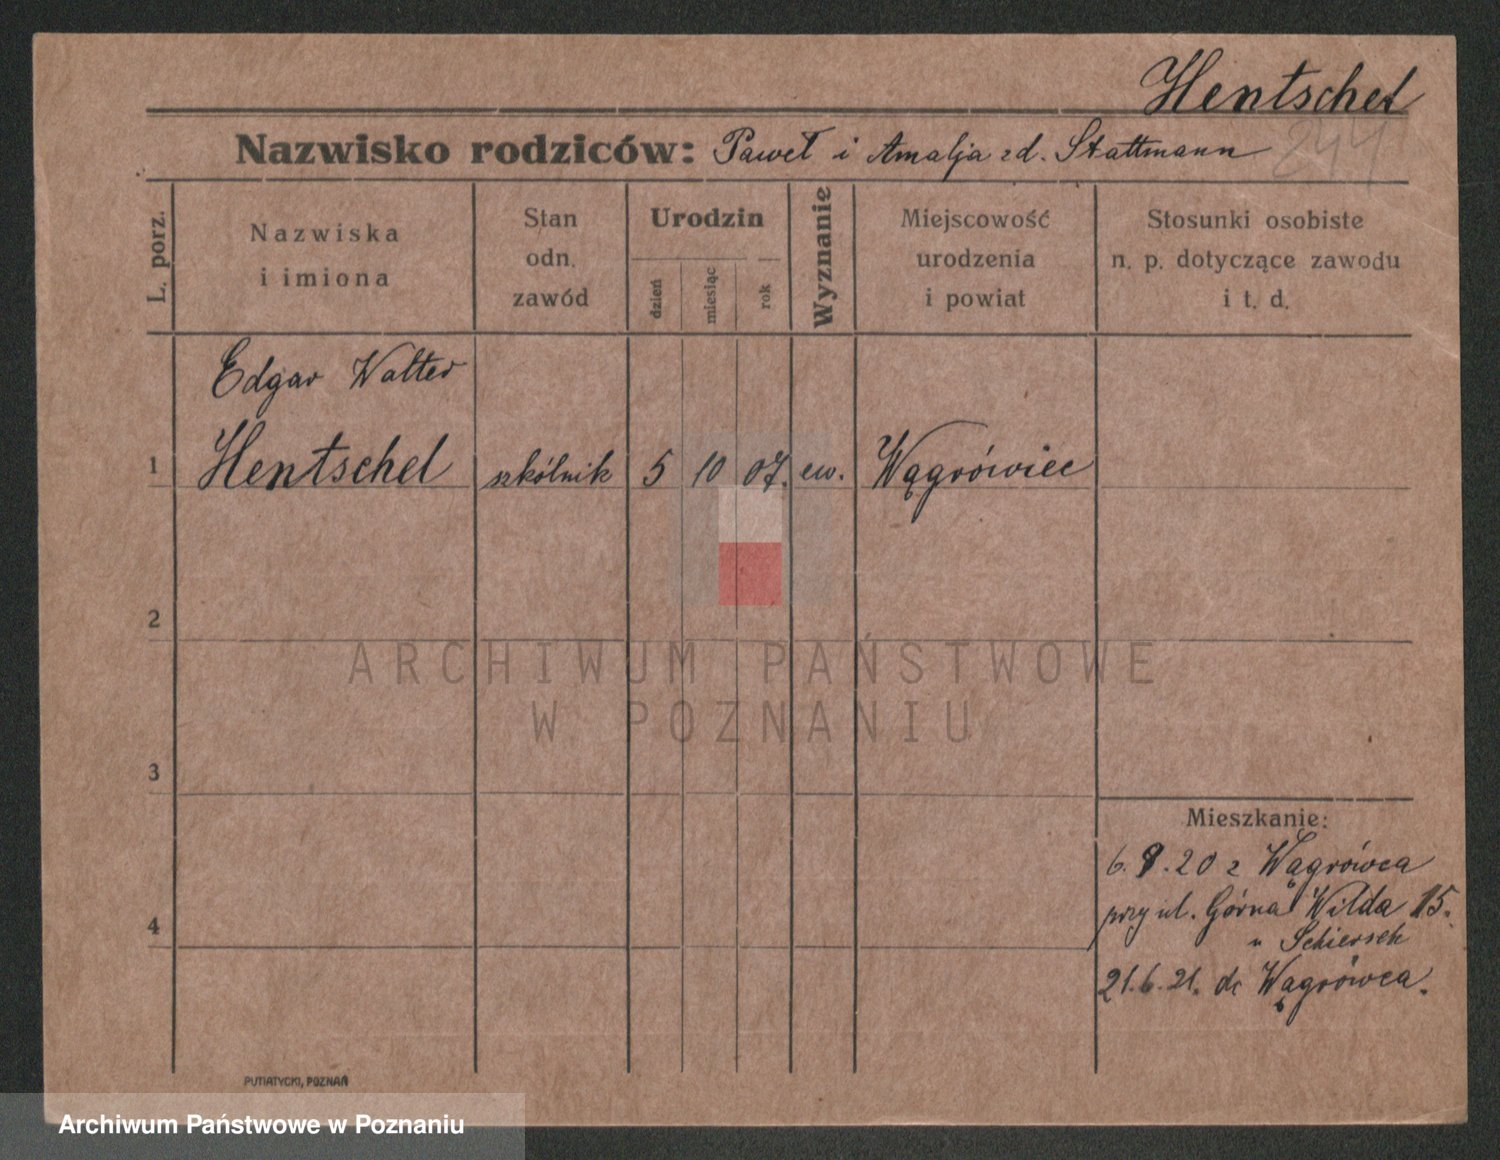 Hentschel
Nazwisko rodziców: Paweł i Amalja zd. Stattmann
244
L. porz.
Nazwiska
i imiona
Stan
odn.
zawód
Urodzin
dzień
miesiąc
rok
Wyznanie
Miejscowość
urodzenia
i powiat
Stosunki osobiste
n. p. dotyczące zawodu
i t. d.
Edgar Walter
1 Hentschel szkólnik 5 10 07. ew. Wągrówiec
2
ARCHIWUM PAŃSTWOWE
W POZNANIU
3
Mieszkanie:
6.8.20 z Wągrówca
przy ul. Górna Wilda 15.
u Schiersch
4
21.6.21. do Wągrówca.
PUTIATYCKI, POZNAŃ
Archiwum Państwowe w Poznaniu